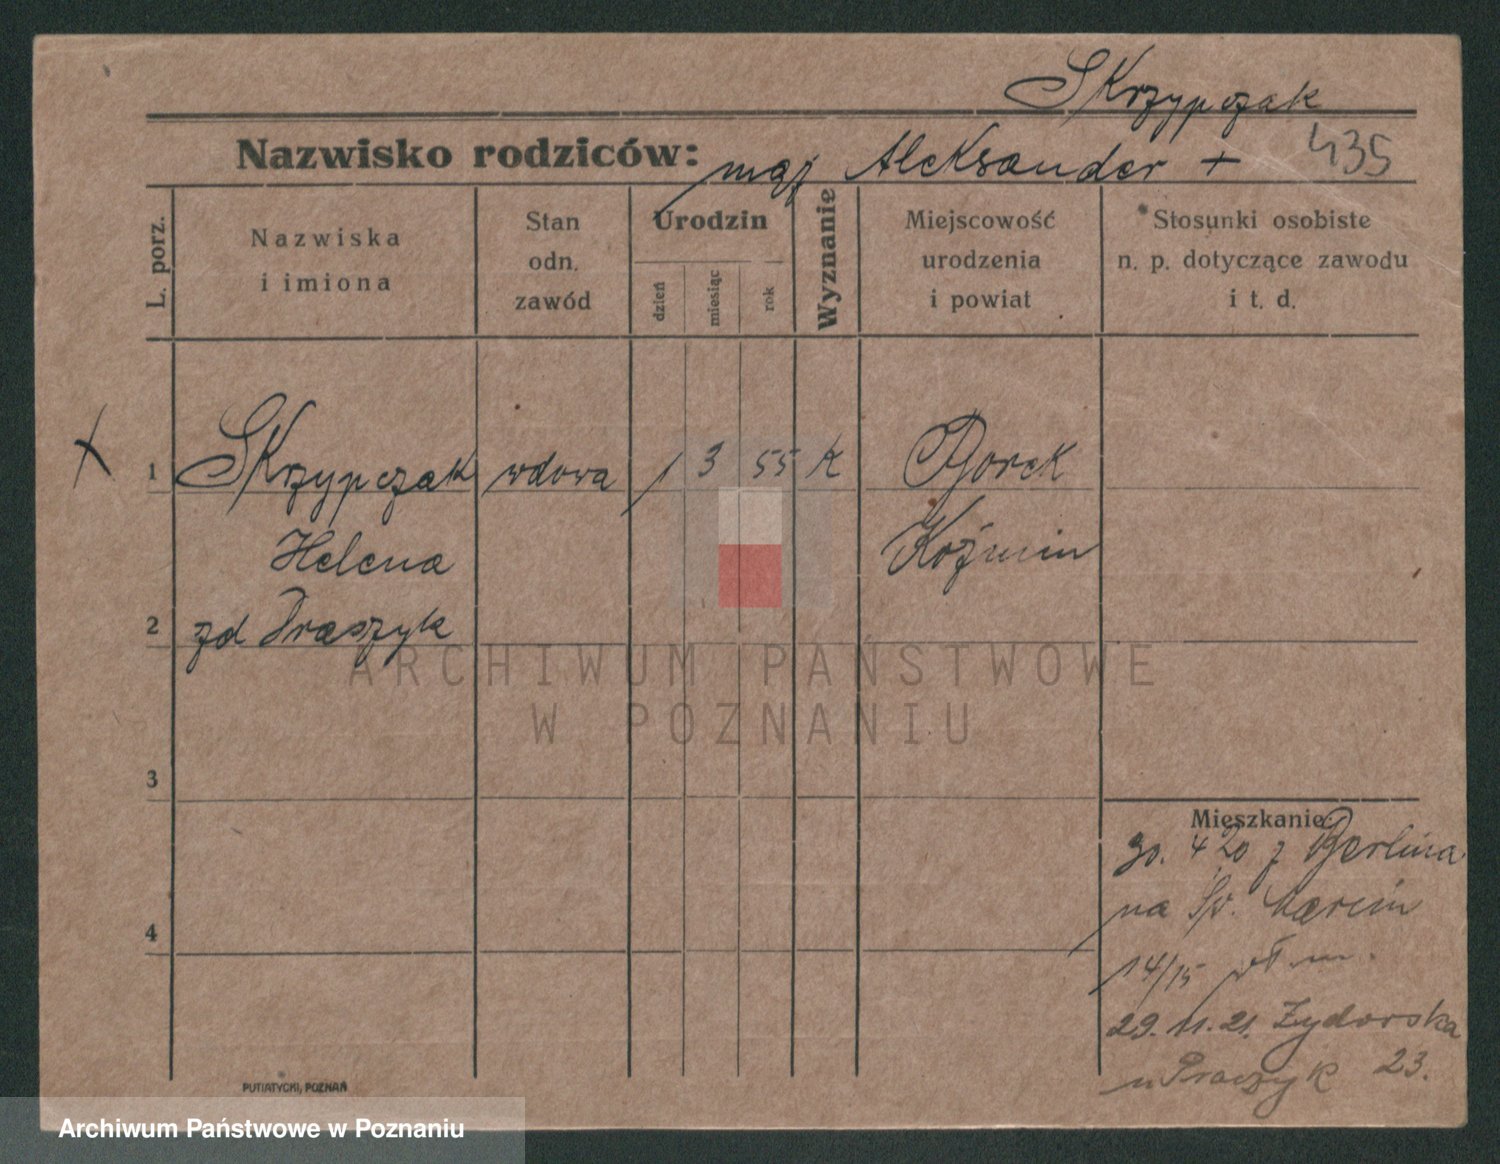 Skrzypczak
Nazwisko rodziców: mąż Aleksander + 435
L. porz.
Nazwiska
i imiona
Stan
odn.
zawód
Urodzin
dzień
miesiąc
rok
Wyznanie
Miejscowość
urodzenia
i powiat
Stosunki osobiste
n. p. dotyczące zawodu
i t. d.
1 Skrzypczak wdowa 1 3 55 K Borek
Helena Koźmin
2 zd Praszyk
3
4
ARCHIWUM PAŃSTWOWE
W POZNANIU
Mieszkanie:
30. 4 20 z Berlina
na Św. Marcin
14/15 wł. m.
29. 11. 21. Żydowska
u Praczyk 23.
PUTIATYCKI, POZNAŃ
Archiwum Państwowe w Poznaniu